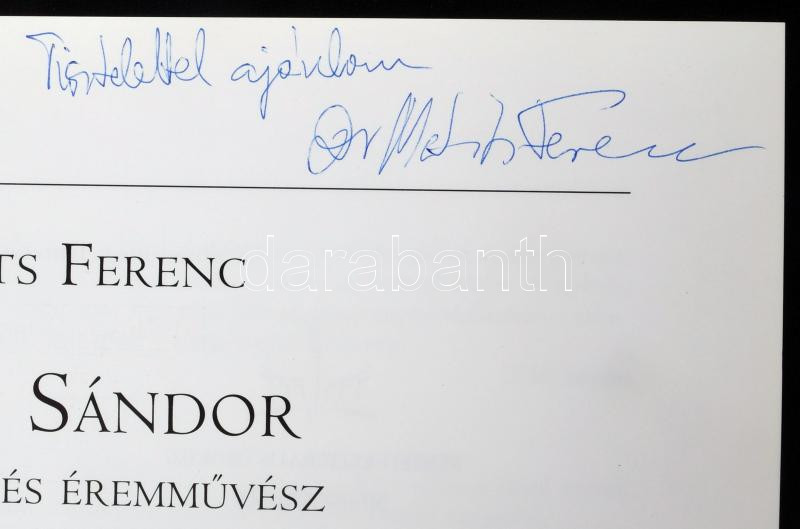 Tisztelettel ajánlom
Dr Matits Ferenc
TS FERENC
darabanth
SÁNDOR
ÉS ÉREMMŰVÉSZ